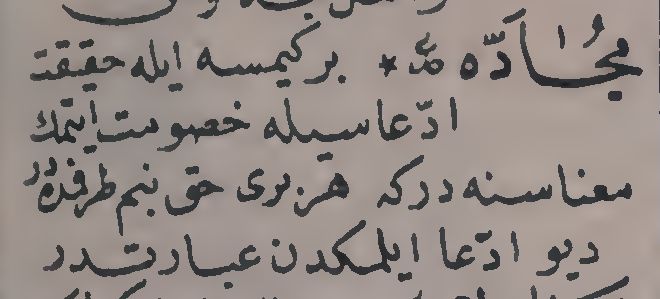 مُجَادَّه عر * بر كیمسه ایله حقیقت
ادّعا سیله خصومت ایتمك
معناسنه در كه هر بری حق بنم طرفمده در
دیو ادّعا ایلمكدن عبارتدر